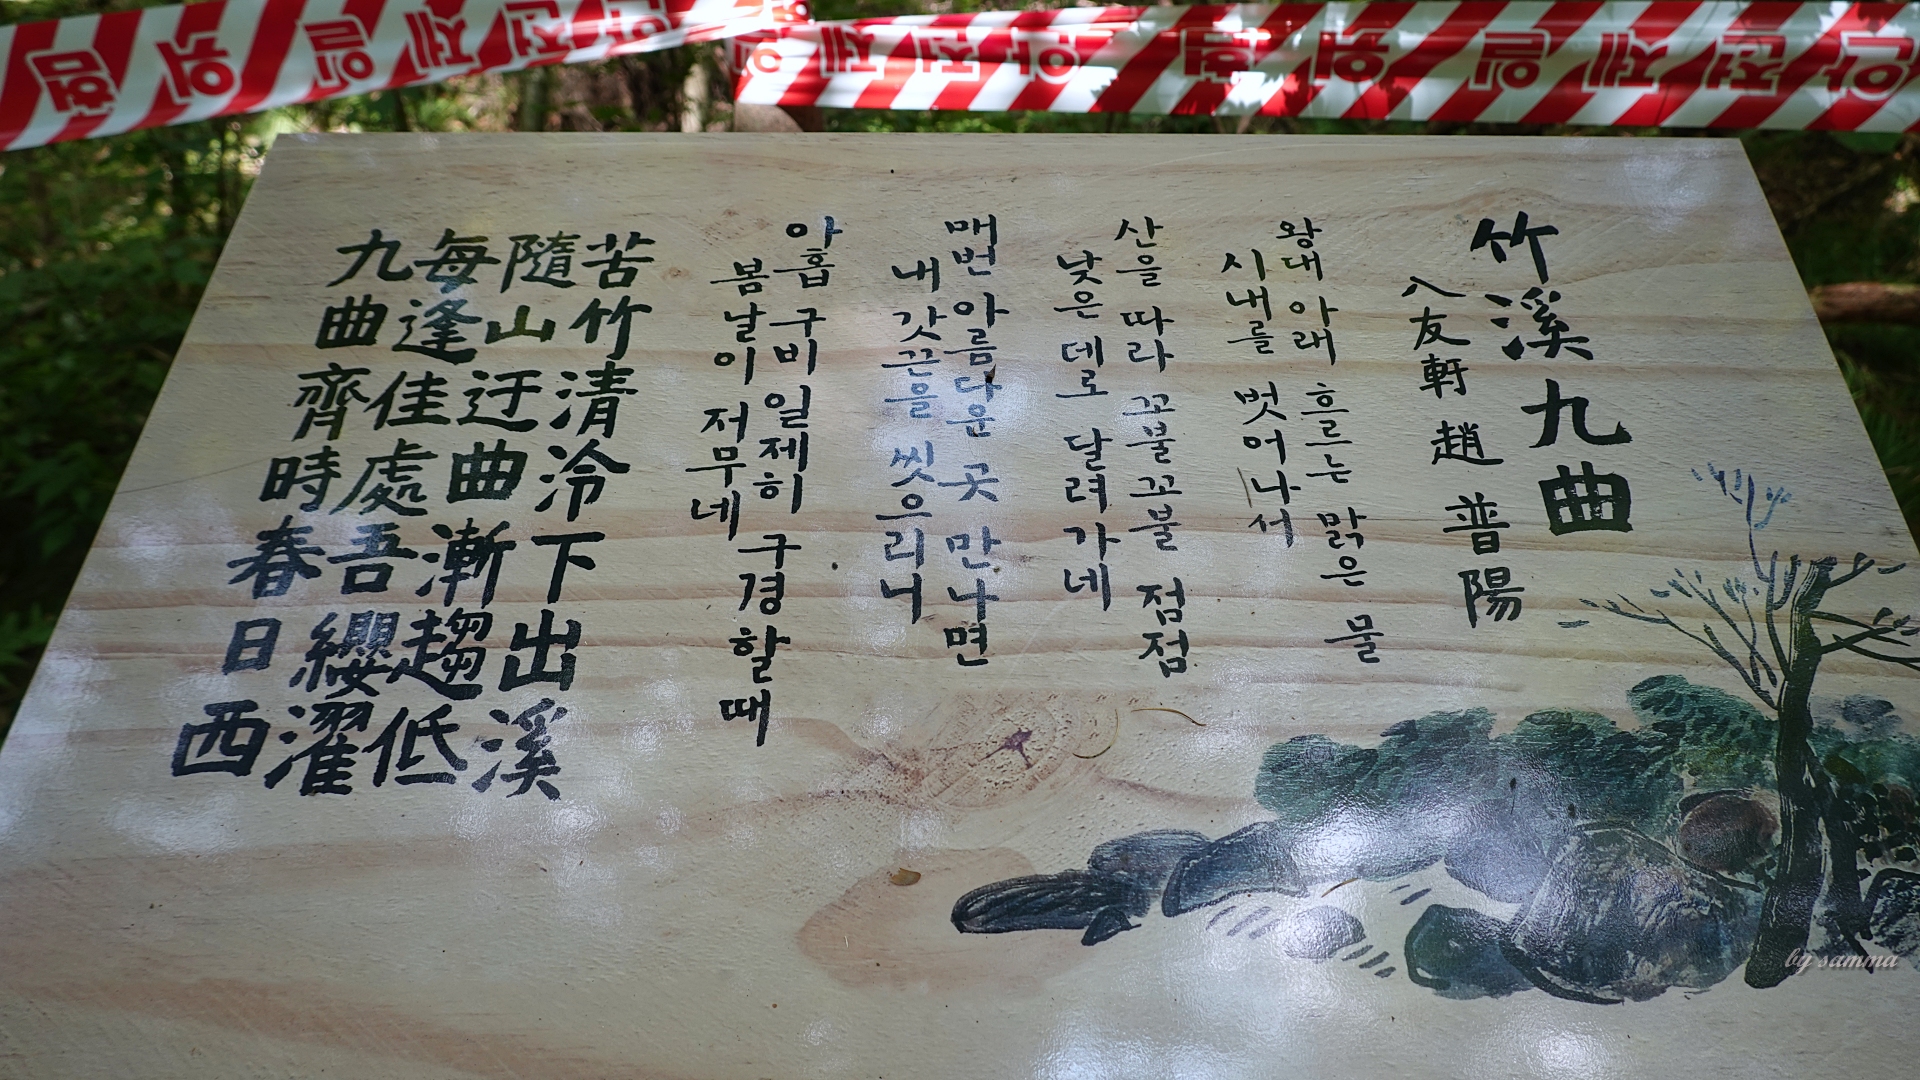 위험 일제전안
안전제일 위험 안전제일
竹溪九曲
八友軒 趙普陽
왕대 아래 흐르는 맑은 물
시내를 벗어나서
산을 따라 꼬불꼬불 점점
낮은 데로 달려가네
매번 아름다운 곳 만나면
내 갓끈을 씻으리니
아홉 구비 일제히 구경할 때
봄날이 저무네
苦竹清泠下出溪
隨山迂曲漸趨低
每逢佳處吾纓濯
九曲齊時春日西
by samma